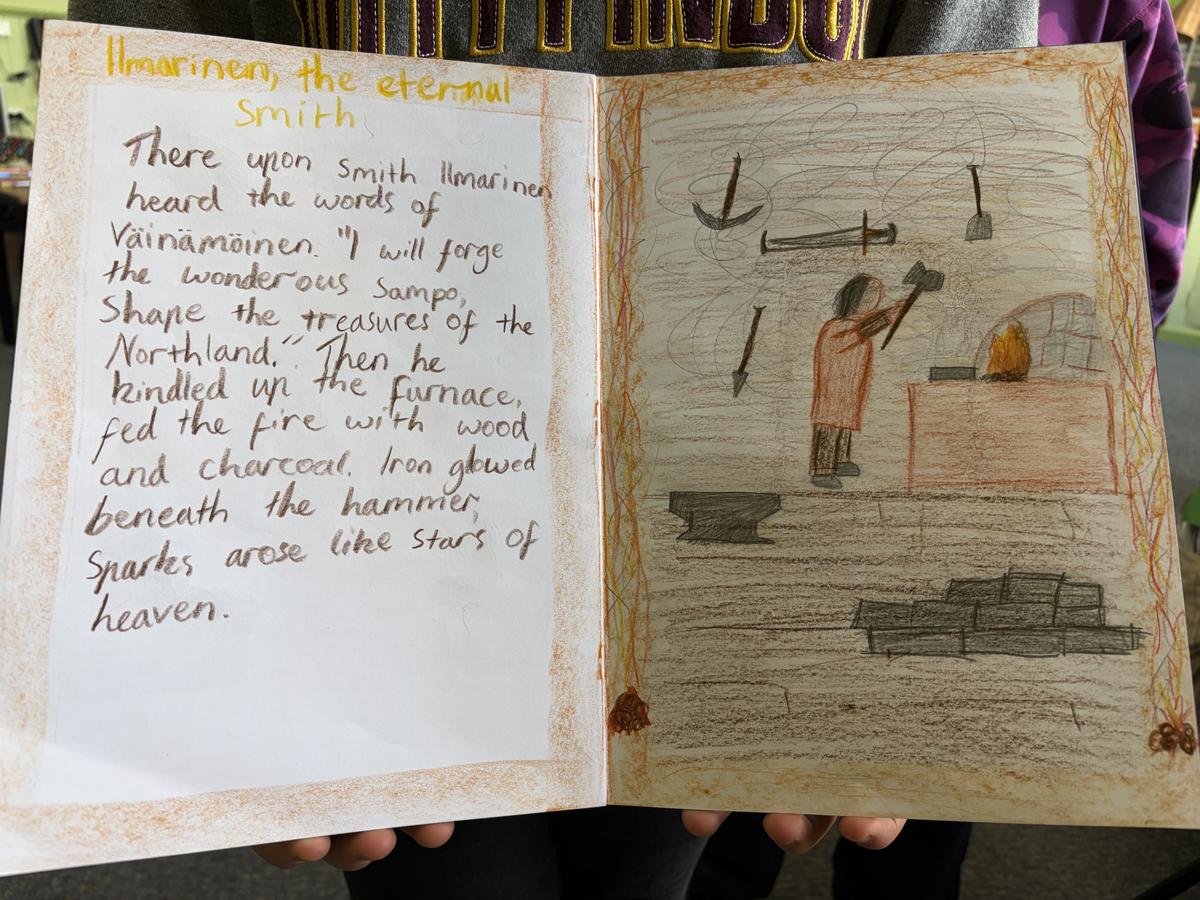 Ilmarinen, the eternal
Smith
There upon smith Ilmarinen
heard the words of
Väinämöinen. "I will forge
the wonderous Sampo,
Shape the treasures of the
Northland." Then he
kindled up the furnace,
fed the fire with wood
and charcoal. Iron glowed
beneath the hammer,
Sparks arose like stars of
heaven.